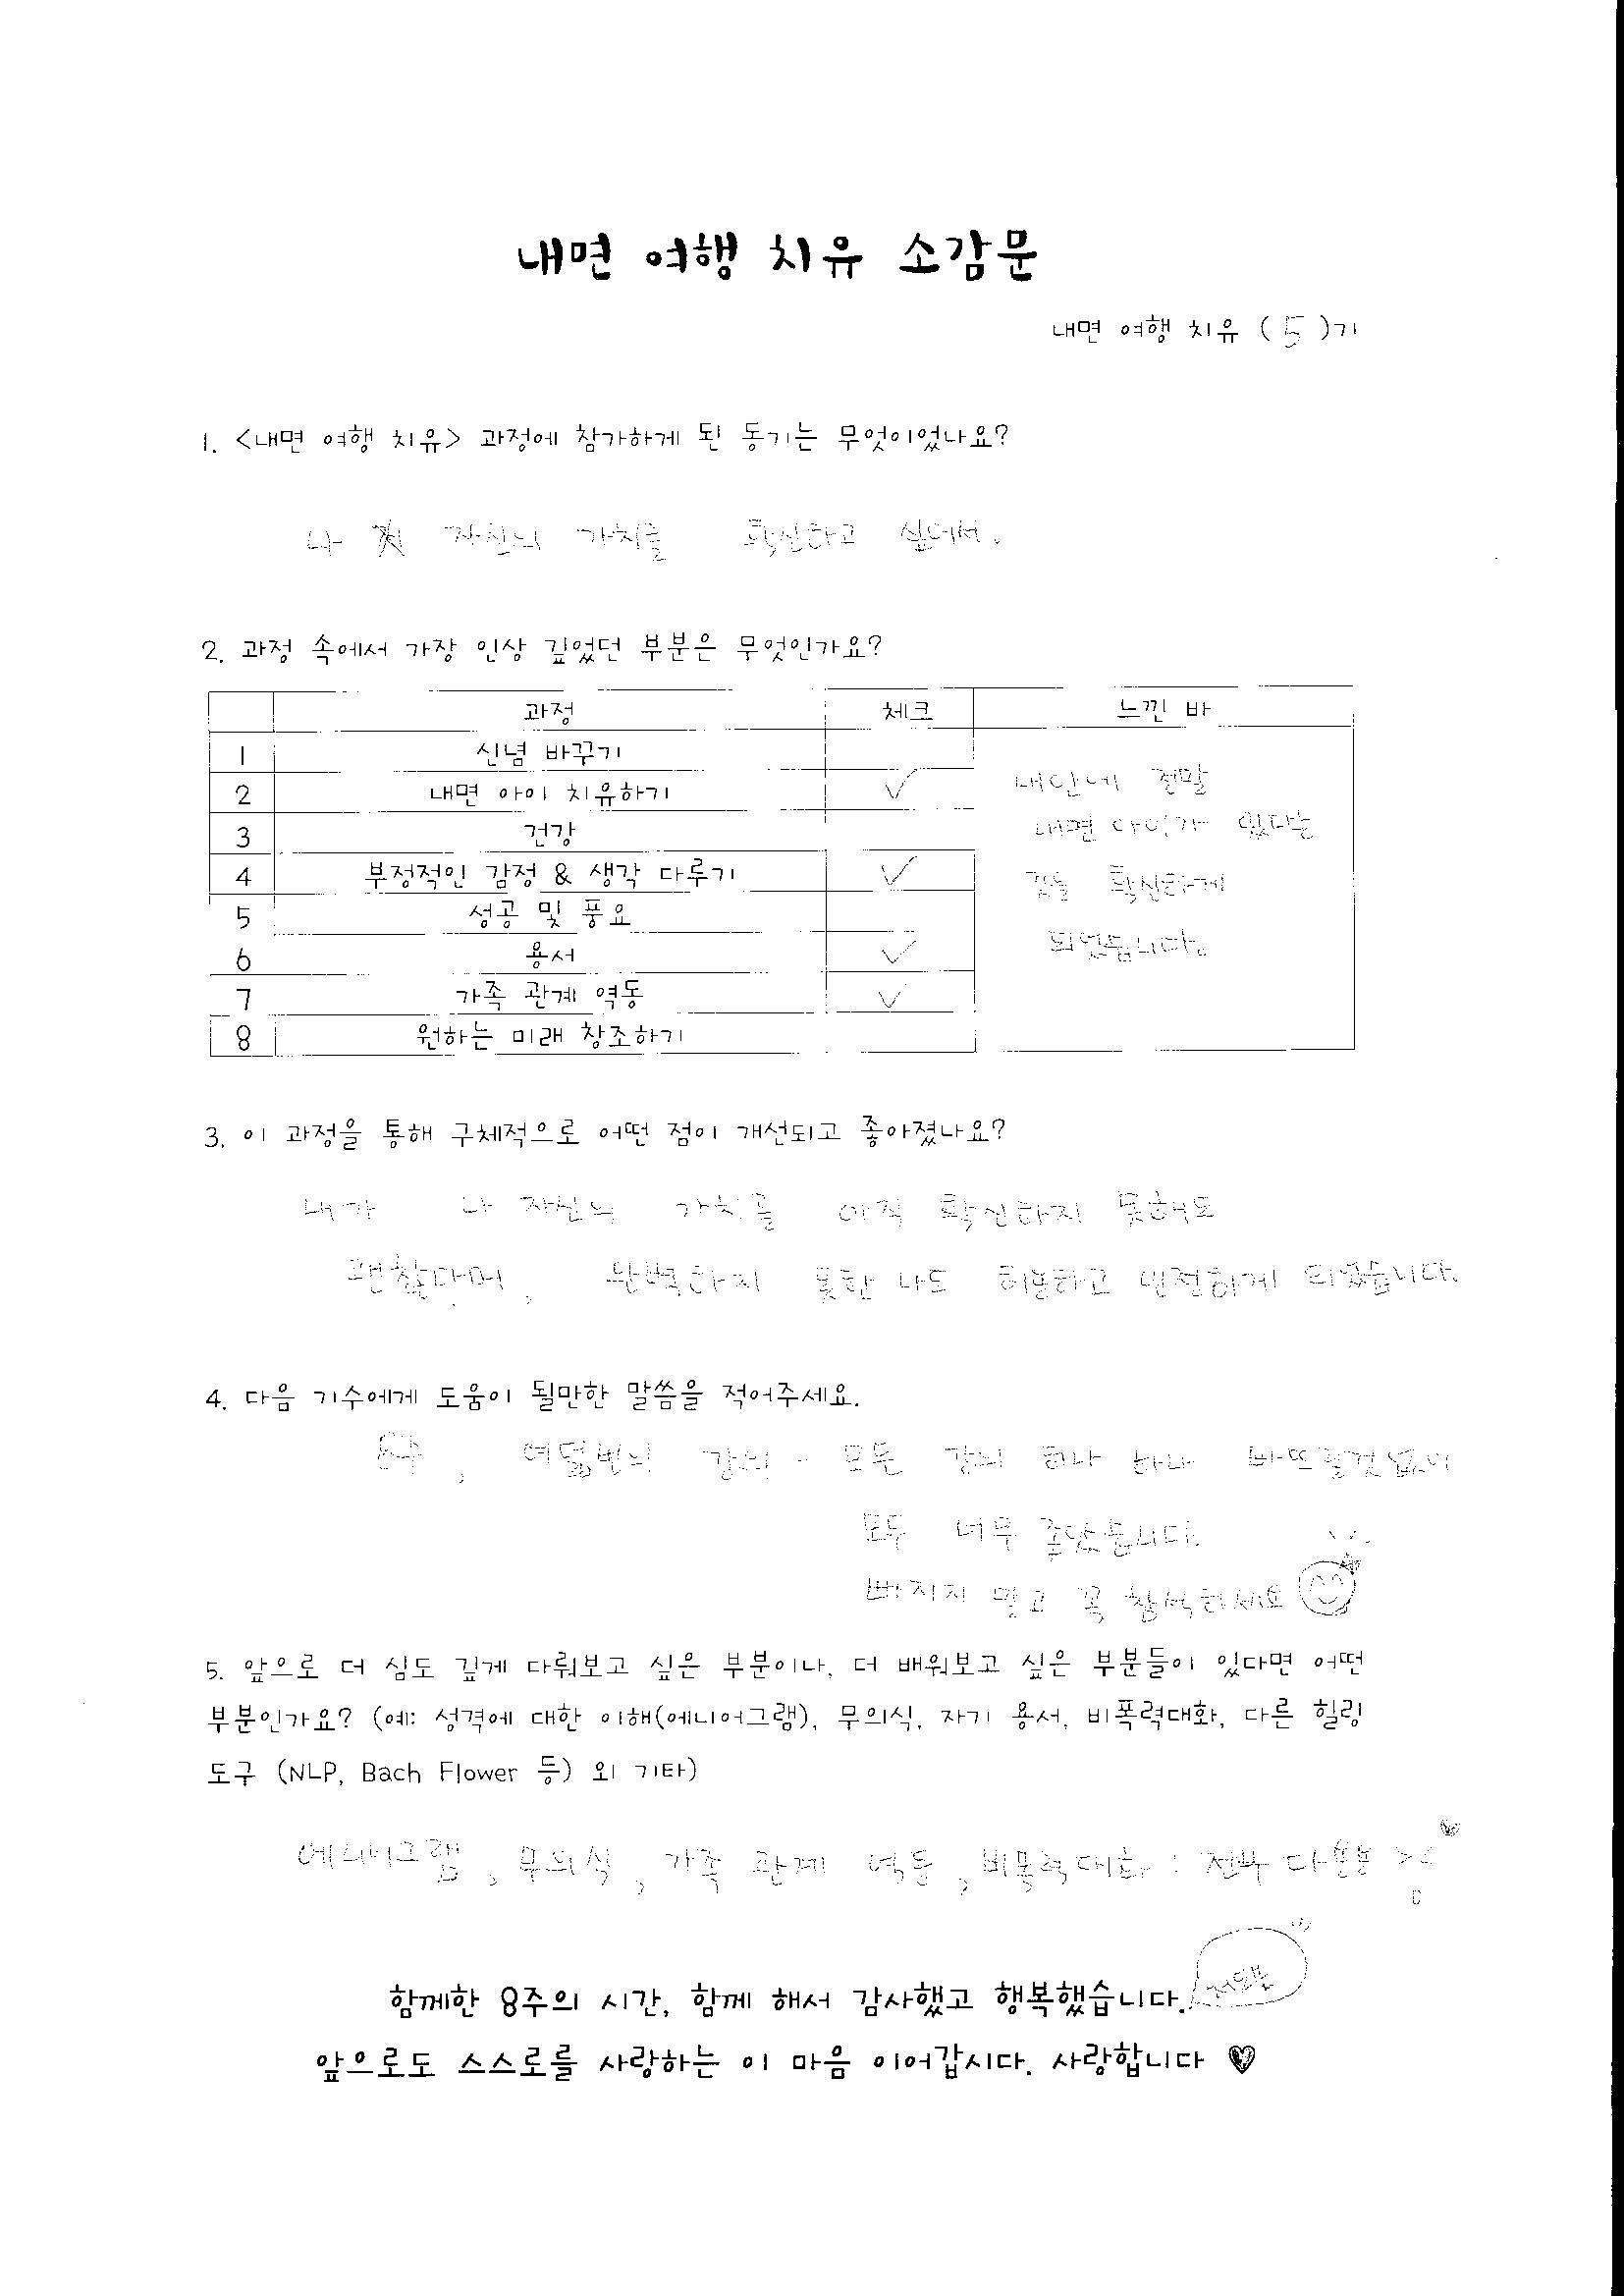 내면 여행 치유 소감문
내면 여행 치유 ( 5 )기
1. <내면 여행 치유> 과정에 참가하게 된 동기는 무엇이었나요?
나 자신의 가치를 확신하고 싶어서.
2. 과정 속에서 가장 인상 깊었던 부분은 무엇인가요?
과정 체크 느낀 바
1 신념 바꾸기
2 내면 아이 치유하기 ✓
3 건강
4 부정적인 감정 & 생각 다루기 ✓
5 성공 및 풍요
6 용서 ✓
7 가족 관계 역동 ✓
8 원하는 미래 창조하기
내안에 정말
내면 아이가 있다는
것을 확신하게
되었습니다.
3. 이 과정을 통해 구체적으로 어떤 점이 개선되고 좋아졌나요?
내가 나 자신의 가치를 아직 확신하지 못해도
괜찮다며, 완벽하지 못한 나도 허용하고 인정하게 되었습니다.
4. 다음 기수에게 도움이 될만한 말씀을 적어주세요.
8주, 여덟번의 강의. 모든 강의 하나 하나 빠뜨릴것 없이
모두 너무 좋았습니다.
빠지지 말고 꼭 참석하세요
5. 앞으로 더 심도 깊게 다뤄보고 싶은 부분이나, 더 배워보고 싶은 부분들이 있다면 어떤
부분인가요? (예: 성격에 대한 이해(에니어그램), 무의식, 자기 용서, 비폭력대화, 다른 힐링
도구 (NLP, Bach Flower 등) 외 기타)
에니어그램, 무의식, 가족 관계 역동, 비폭력대화 : 전부 다
함께한 8주의 시간, 함께 해서 감사했고 행복했습니다.
저도요
앞으로도 스스로를 사랑하는 이 마음 이어갑시다. 사랑합니다 ♥